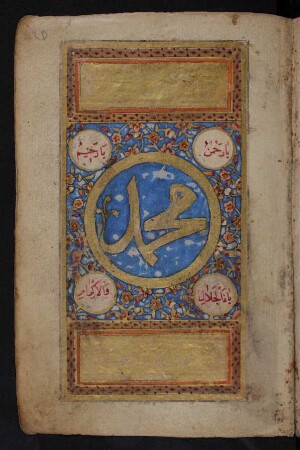 يا رحمن
يا رحيم
محمد
يا ذا الجلال
والاكرام